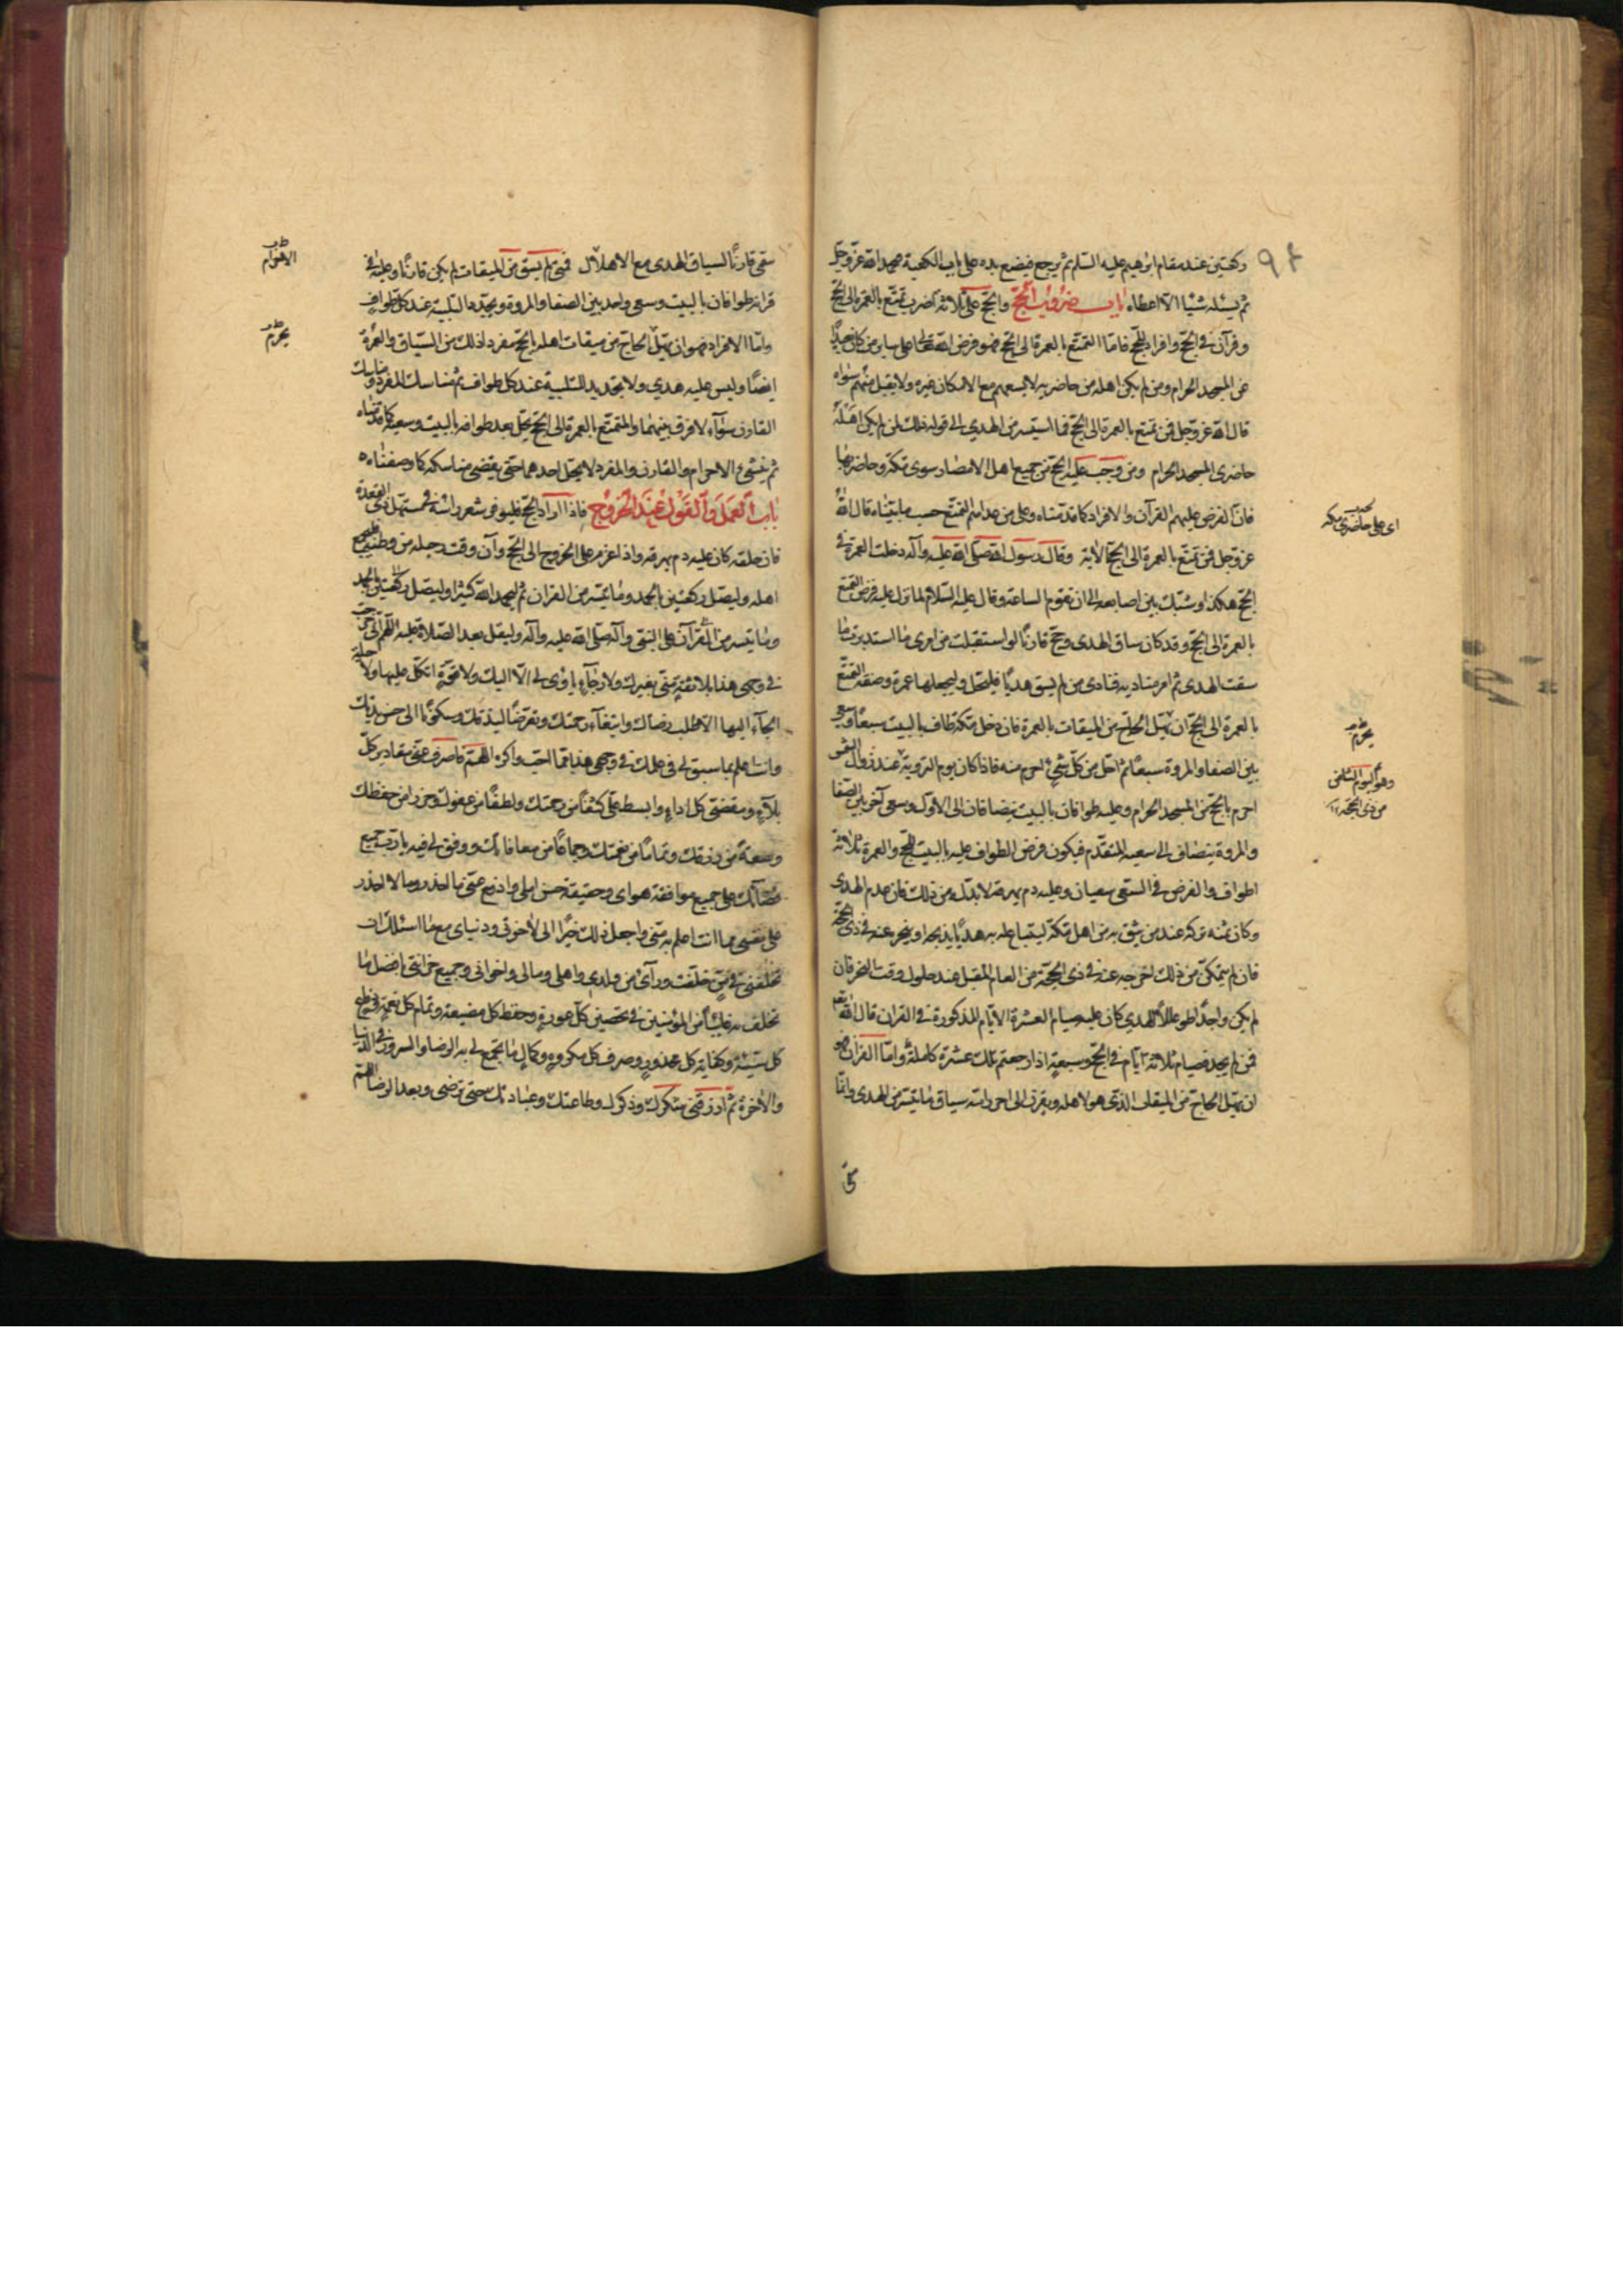 ركعتين عند مقام ابرهيم عليه السلم ثم يرجع فيضع يده على باب الكعبة فيحمد الله عز وجل
ثم يسئله شيئا الا اعطاه باب ضروب الحج والحج على ثلاثة اضرب تمتع بالعمرة الى الحج
وقرآن في الحج وافراد للحج فاما التمتع بالعمرة الى الحج فهو فرض الله تعالى على ساير من كان
عن المسجد الحرام ومن لم يكن اهله من حاضريه لا يسعهم مع الامكان غيره ولا يقبل منهم سواه
قال الله عز وجل فمن تمتع بالعمرة الى الحج فما استيسر من الهدي الى قوله ذلك لمن لم يكن اهله
حاضري المسجد الحرام ومن وجب عليه الحج من جميع اهل الامصار سوى مكة وحاضريها
فان الفرض عليهم القرآن والافراد كما قدمناه وعلى من عداهم التمتع حسب ما بيناه قال الله
عز وجل فمن تمتع بالعمرة الى الحج الآية وقال رسول الله صلى الله عليه وآله دخلت العمرة في
الحج هكذا وشبك بين اصابعه الى ان تقوم الساعة وقال عليه السلام لما نزل عليه فرض التمتع
بالعمرة الى الحج وقد كان ساق الهدى وحج قارنا لو استقبلت من امري ما استدبرت ما
سقت الهدى ثم امر مناديه فنادى من لم يسق هديا فليحل وليجعلها عمرة وصفة التمتع
بالعمرة الى الحج ان يهل الحاج من الميقات بالعمرة فان دخل مكة طاف بالبيت سبعا وسعى
بين الصفا والمروة سبعا ثم احل من كل شيء احرم منه فاذا كان يوم التروية عند زوال الشمس
احرم بالحج من المسجد الحرام وعليه طوافان بالبيت ينضافان الى الاول وسعى آخر بين الصفا
والمروة ينضاف الى سعيه المتقدم فيكون فرض الطواف عليه بالبيت للحج والعمرة ثلاثة
اطواف والفرض في السعى سعيان وعليه دم يهرقه لا بد له من ذلك فان عدم الهدى
وكان ثمنه تركه عند من يثق به من اهل مكة ليبتاع له به هديا يذبحه او ينحر عنه في ذي الحجة
فان لم يتمكن من ذلك اخرجه عنه في ذي الحجة من العام المقبل عند حلول وقت النحر فان
لم يكن واجدا للهدي كان عليه صيام العشرة الايام المذكورة في القران قال الله
فمن لم يجد فصيام ثلاثة ايام في الحج وسبعة اذا رجعتم تلك عشرة كاملة واما القران فهو
ان يهل الحاج من الميقات الذي هو لاهله ويقرن الى احرامه سياق ما تيسر من الهدى وانما
اي على حاضري مكة
يحرم
وهو اليوم الثامن
من ذي الحجة
سمى قارنا لسياق الهدى مع الاهلال فمن لم يسق من الميقات لم يكن قارنا وعليه في
قرانه طوافان بالبيت وسعى واحد بين الصفا والمروة ويجدد التلبية عند كل طواف
واما الافراد فهو ان يهل الحاج من ميقات اهله بالحج مفردا ذلك من السياق والعمرة
ايضا وليس عليه هدي ولا تجديد التلبية عند كل طواف ثم مناسك المفرد ومناسك
القارن سواء لا فرق بينهما والمتمتع بالعمرة الى الحج يحل بعد طوافه بالبيت وسعيه كما قدمناه
ثم ينشئ الاحرام والقارن والمفرد لا يحل احدهما حتى يقضي مناسكه كما وصفناه
باب العمل والقول عند الخروج فاذا اراد الحج فليوفر شعر راسه في مستهل ذي القعدة
فان حلقه كان عليه دم يهرقه واذا عزم على الخروج الى الحج وآن وقت رحيله من وطنه فليجمع
اهله وليصل ركعتين بالحمد وما تيسر من القران ثم ليحمد الله كثيرا وليصل ركعتين بالحمد
وما تيسر من القرآن على النبي وآله صلى الله عليه وآله وليقل بعد الصلاة عليه اللهم اني خرجت
في وجهي هذا بلا ثقة مني بغيرك ولا رجاء ياوي بي الا اليك ولا قوة اتكل عليها ولا حيلة
الجأ اليها الا طلب رضاك وابتغاء رحمتك وتعرضا لرزقك وسكونا الى حسن
وانت اعلم بما سبق لي في علمك في وجهي هذا مما احب واكره اللهم فاصرف عني مقادير كل
بلاء ومقضى كل داء وابسط علي كنفا من رحمتك ولطفا من عفوك وحرزا من حفظك
وسعة من رزقك وتماما من نعمتك وجماعا من معافاتك ووفق لي فيه يا رب جميع
قضائك على جميع موافقة هواي وحقيقة حسن املي وادفع عني ما احذر وما لا احذر
على نفسي مما انت اعلم به مني واجعل ذلك خيرا لي لاخرتي ودنياي مع ما اسئلك ان
تخلفني فيمن خلفت ورآئي من ولدي واهلي ومالي واخواني وجميع حزانتي بافضل ما
تخلف به غائبا من المؤمنين في تحصين كل عورة وحفظ كل مضيعة وتمام كل نعمة
كل سيئة وكفاية كل محذور وصرف كل مكروه وكمال ما يجمع لي به الرضا والسرور في الدنيا
والاخرة ثم ارزقني شكرك وذكرك وطاعتك وعبادتك حتى ترضى وبعد الرضا اللهم
الاحرام
يحرم